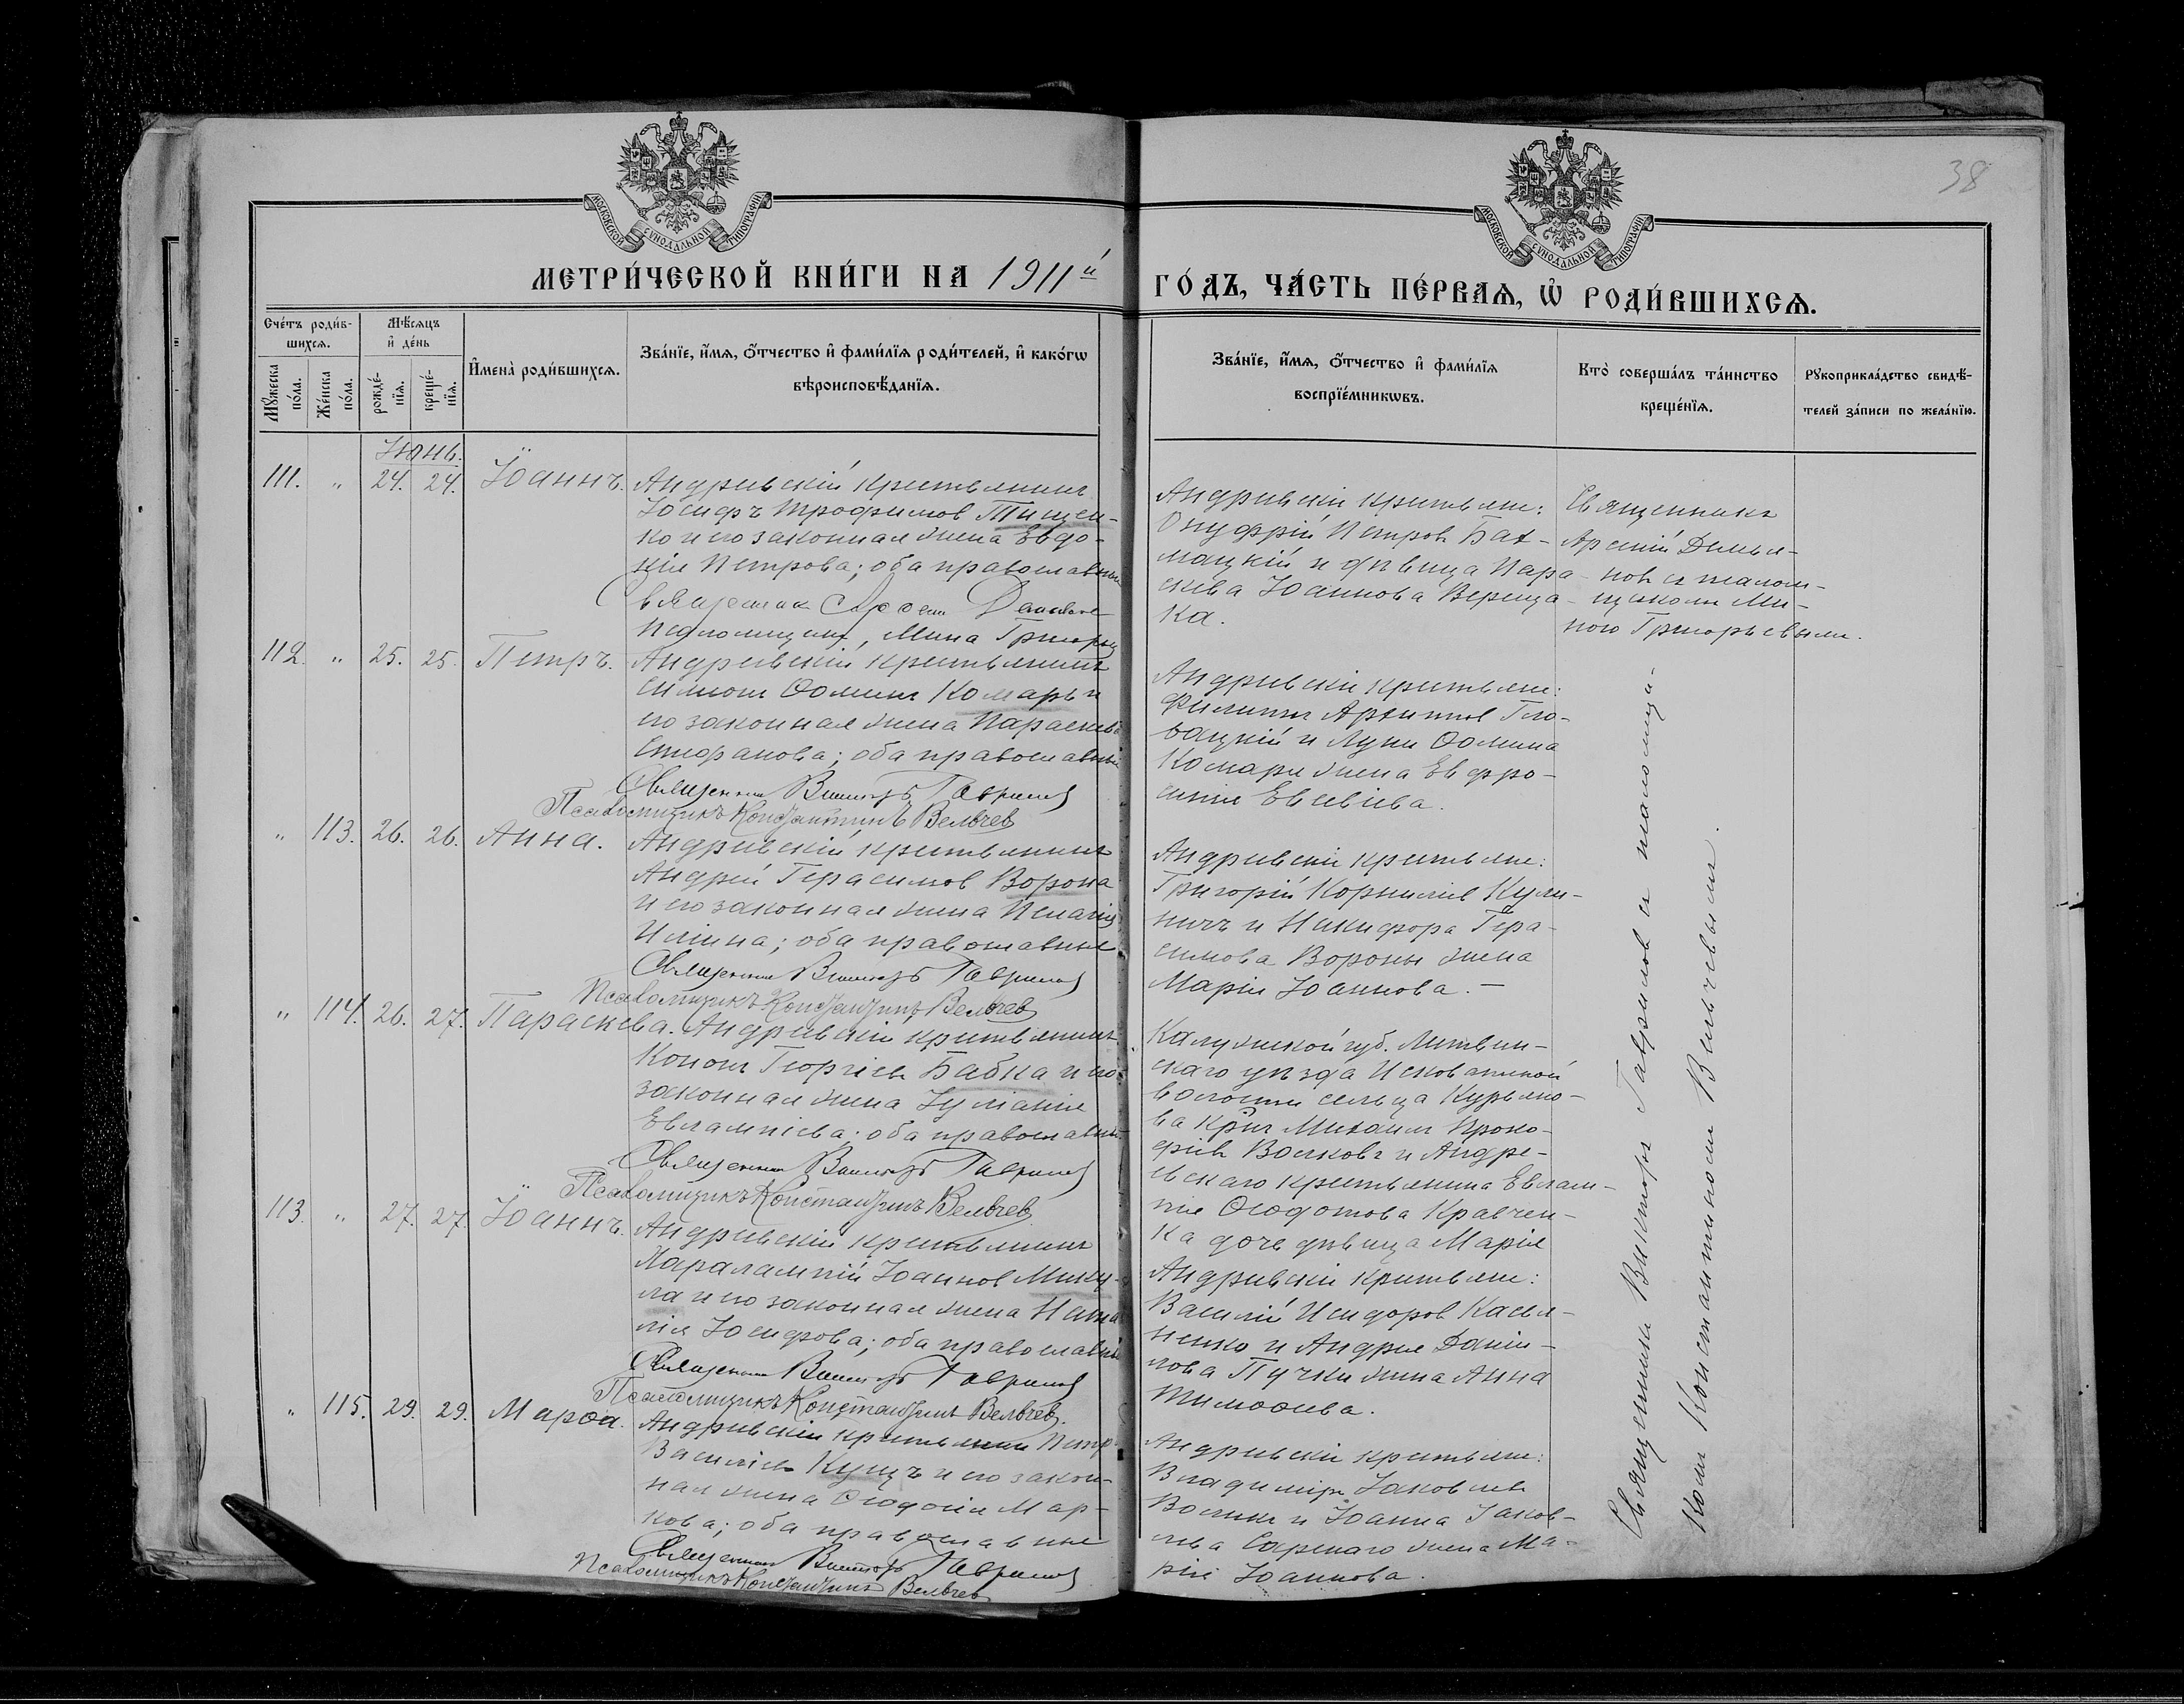 38
МОСКОВСКОЙ СУНОДАЛЬНОЙ ТИПОГРАФІИ
МОСКОВСКОЙ СУНОДАЛЬНОЙ ТИПОГРАФІИ
МЕТРИ́ЧЕСКОЙ КНИ́ГИ НА 1911й ГО́ДЪ, ЧА́СТЬ ПЕ́РВАѦ, Ѡ҆ РОДИ́ВШИХСѦ.
Сче́тъ роди́в-
шихсѧ.
Мѣ́сѧцъ
и҆ де́нь
Мꙋ́жеска
по́ла.
Же́нска
по́ла.
рожде́-
нїѧ.
креще́-
нїѧ.
И҆мена̀ роди́вшихсѧ.
Зва́нїе, и҆́мѧ, ѻ҆́тчество и҆ фами́лїѧ роди́телей, и҆ како́гѡ
вѣроисповѣ́данїѧ.
Зва́нїе, и҆́мѧ, ѻ҆́тчество и҆ фами́лїѧ
воспрїе́мникѡвъ.
Кто̀ соверша́лъ та́инство
креще́нїѧ.
Рꙋкоприкла́дство свидѣ́-
телей за́писи по жела́нїю.
Іюнь.
111. " 24. 24. Іоаннъ.
Андреевскій крестьянинъ
Іосифъ Трофимов Тищен-
ко и его законная жена Евдо-
кія Петрова; оба православные
Священник Арсений Демьянов
Псаломщик, Мина Григорьев
Андреевскіе крестьяне:
Онуфрій Петров Бах-
мацкій и девица Пара-
скева Іоаннова Вереща-
ка.
Священникъ
Арсеній Демья-
нов с псалом-
щиком Ми-
ною Григорьевым.
112. " 25. 25. Петръ.
Андреевскій крестьянинъ
Симеонъ Ѳоминъ Комарь и
его законная жена Параскева
Стефанова; оба православные
Священник Виктор Гаврилов
Псаломщикъ Константинъ Вельчев
Андреевскіе крестьяне:
Филиппъ Архипов Гло-
вацкій и Луки Ѳомина
Комаря жена Евфро-
синія Евсевіева.
" 113. 26. 26. Анна.
Андреевскій крестьянинъ
Андрей Герасимов Ворона
и его законная жена Пелагія
Иліина; оба православные
Священник Виктор Гаврилов
Псаломщикъ Константинъ Вельчев
Андреевскіе крестьяне:
Григорій Корнилиев Кули-
ничъ и Никифора Гера-
симова Вороны жена
Марія Іоаннова. —
" 114. 26. 27. Параскева.
Андреевскій крестьянинъ
Кононъ Георгіев Бабка и его
законная жена Іуліанія
Евлампіева; оба православные
Священник Виктор Гаврилов
Псаломщикъ Константинъ Вельчев
Калужской губ. Лихвин-
скаго уѣзда
волости сельца Курьяно-
ва Кр-нъ Михаилъ Проко-
фіев Волковъ и Андре-
евскаго крестьянина Евлам-
пія Ѳеодотова Кравчен-
ка дочь девица Марія
113. " 27. 27. Іоаннъ.
Андреевскій крестьянинъ
Харалампій Іоаннов Мику-
ла и его законная жена Ната-
лія Іосифова; оба православные
Священник Виктор Гаврилов
Псаломщикъ Константинъ Вельчев.
Андреевскіе крестьяне:
Василій Исидоров Касья-
ненко и Андрея Даніи-
лова Пучки жена Анна
Тимоѳеева.
" 115. 29. 29. Марѳа.
Андреевскій крестьянин Петр
Василіев Куцъ и его закон-
ная жена Ѳеодосія Мар-
кова; оба православные
Священник Виктор Гаврилов
Псаломщикъ Константинъ Вельчев
Андреевскіе крестьяне:
Владиміръ Іаковлев
Волик и Іоанна Іаков-
лева жена Ма-
рія Іоаннова.
Священникъ Викторъ Гаврилов с псаломщи-
комъ Константиномъ Вельчевымъ.